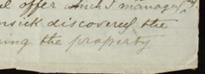 offer which I manage
discovered the
ing the property